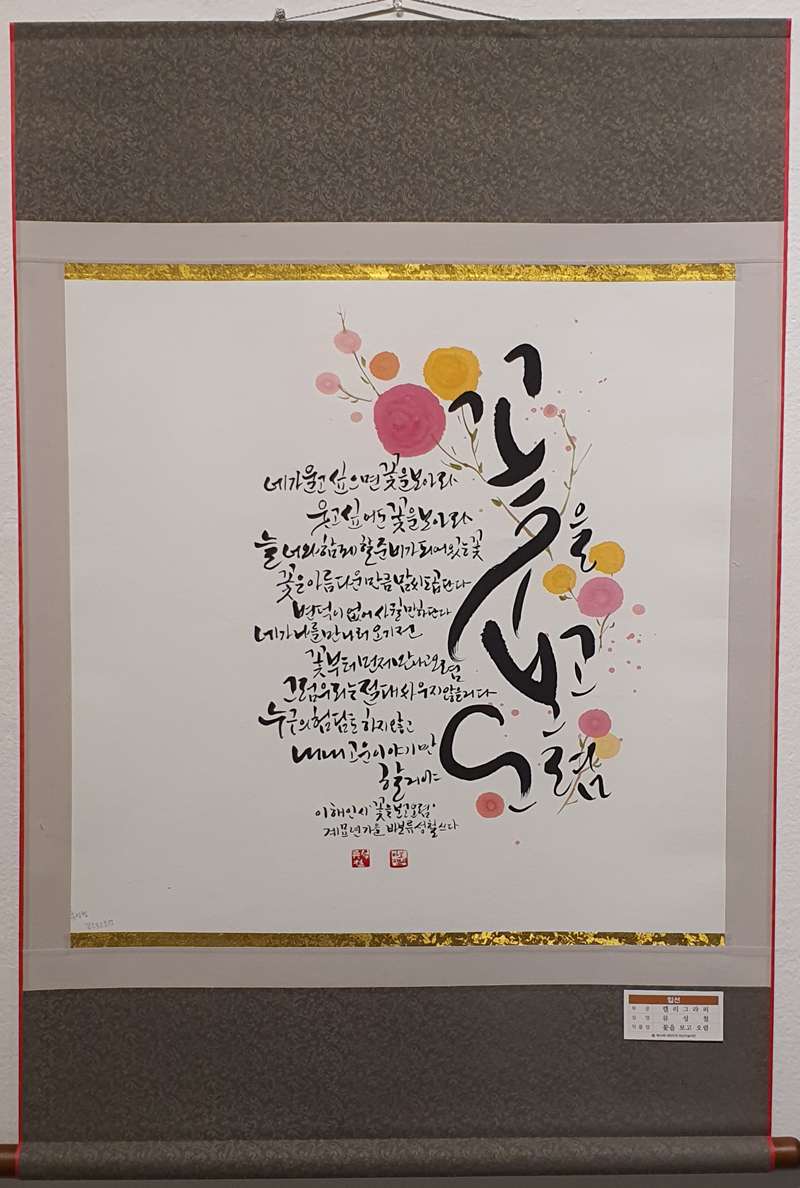 꽃을 보고 오렴
네가 울고 싶으면 꽃을 보아라
웃고 싶어도 꽃을 보아라
늘 너와 함께 할 준비가 되어 있는 꽃
꽃은 아름다운 만큼 맘씨도 곱단다
변덕이 없어 사귈만하단다
네가 나를 만나러 오기 전
꽃부터 먼저 만나고 오렴
그럼 우리는 절대 싸우지 않을 거다
누구의 험담도 하지 않고
내내 고운 이야기만
할 거야
이해인 시 '꽃을 보고 오렴'
계묘년 가을 바보 류성철 쓰다
입선
부 문 캘리그라피
성 명 류 성 철
작품명 꽃을 보고 오렴